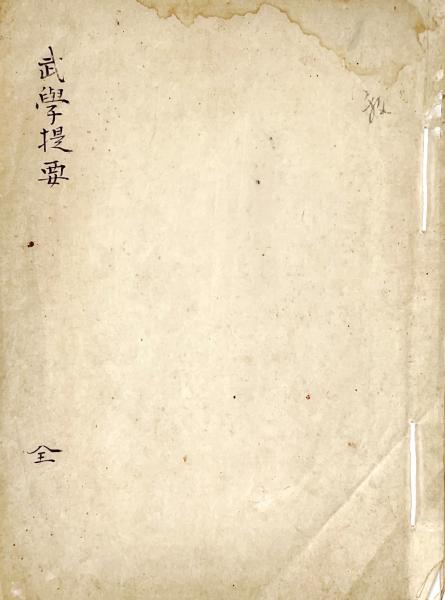 武學提要
全